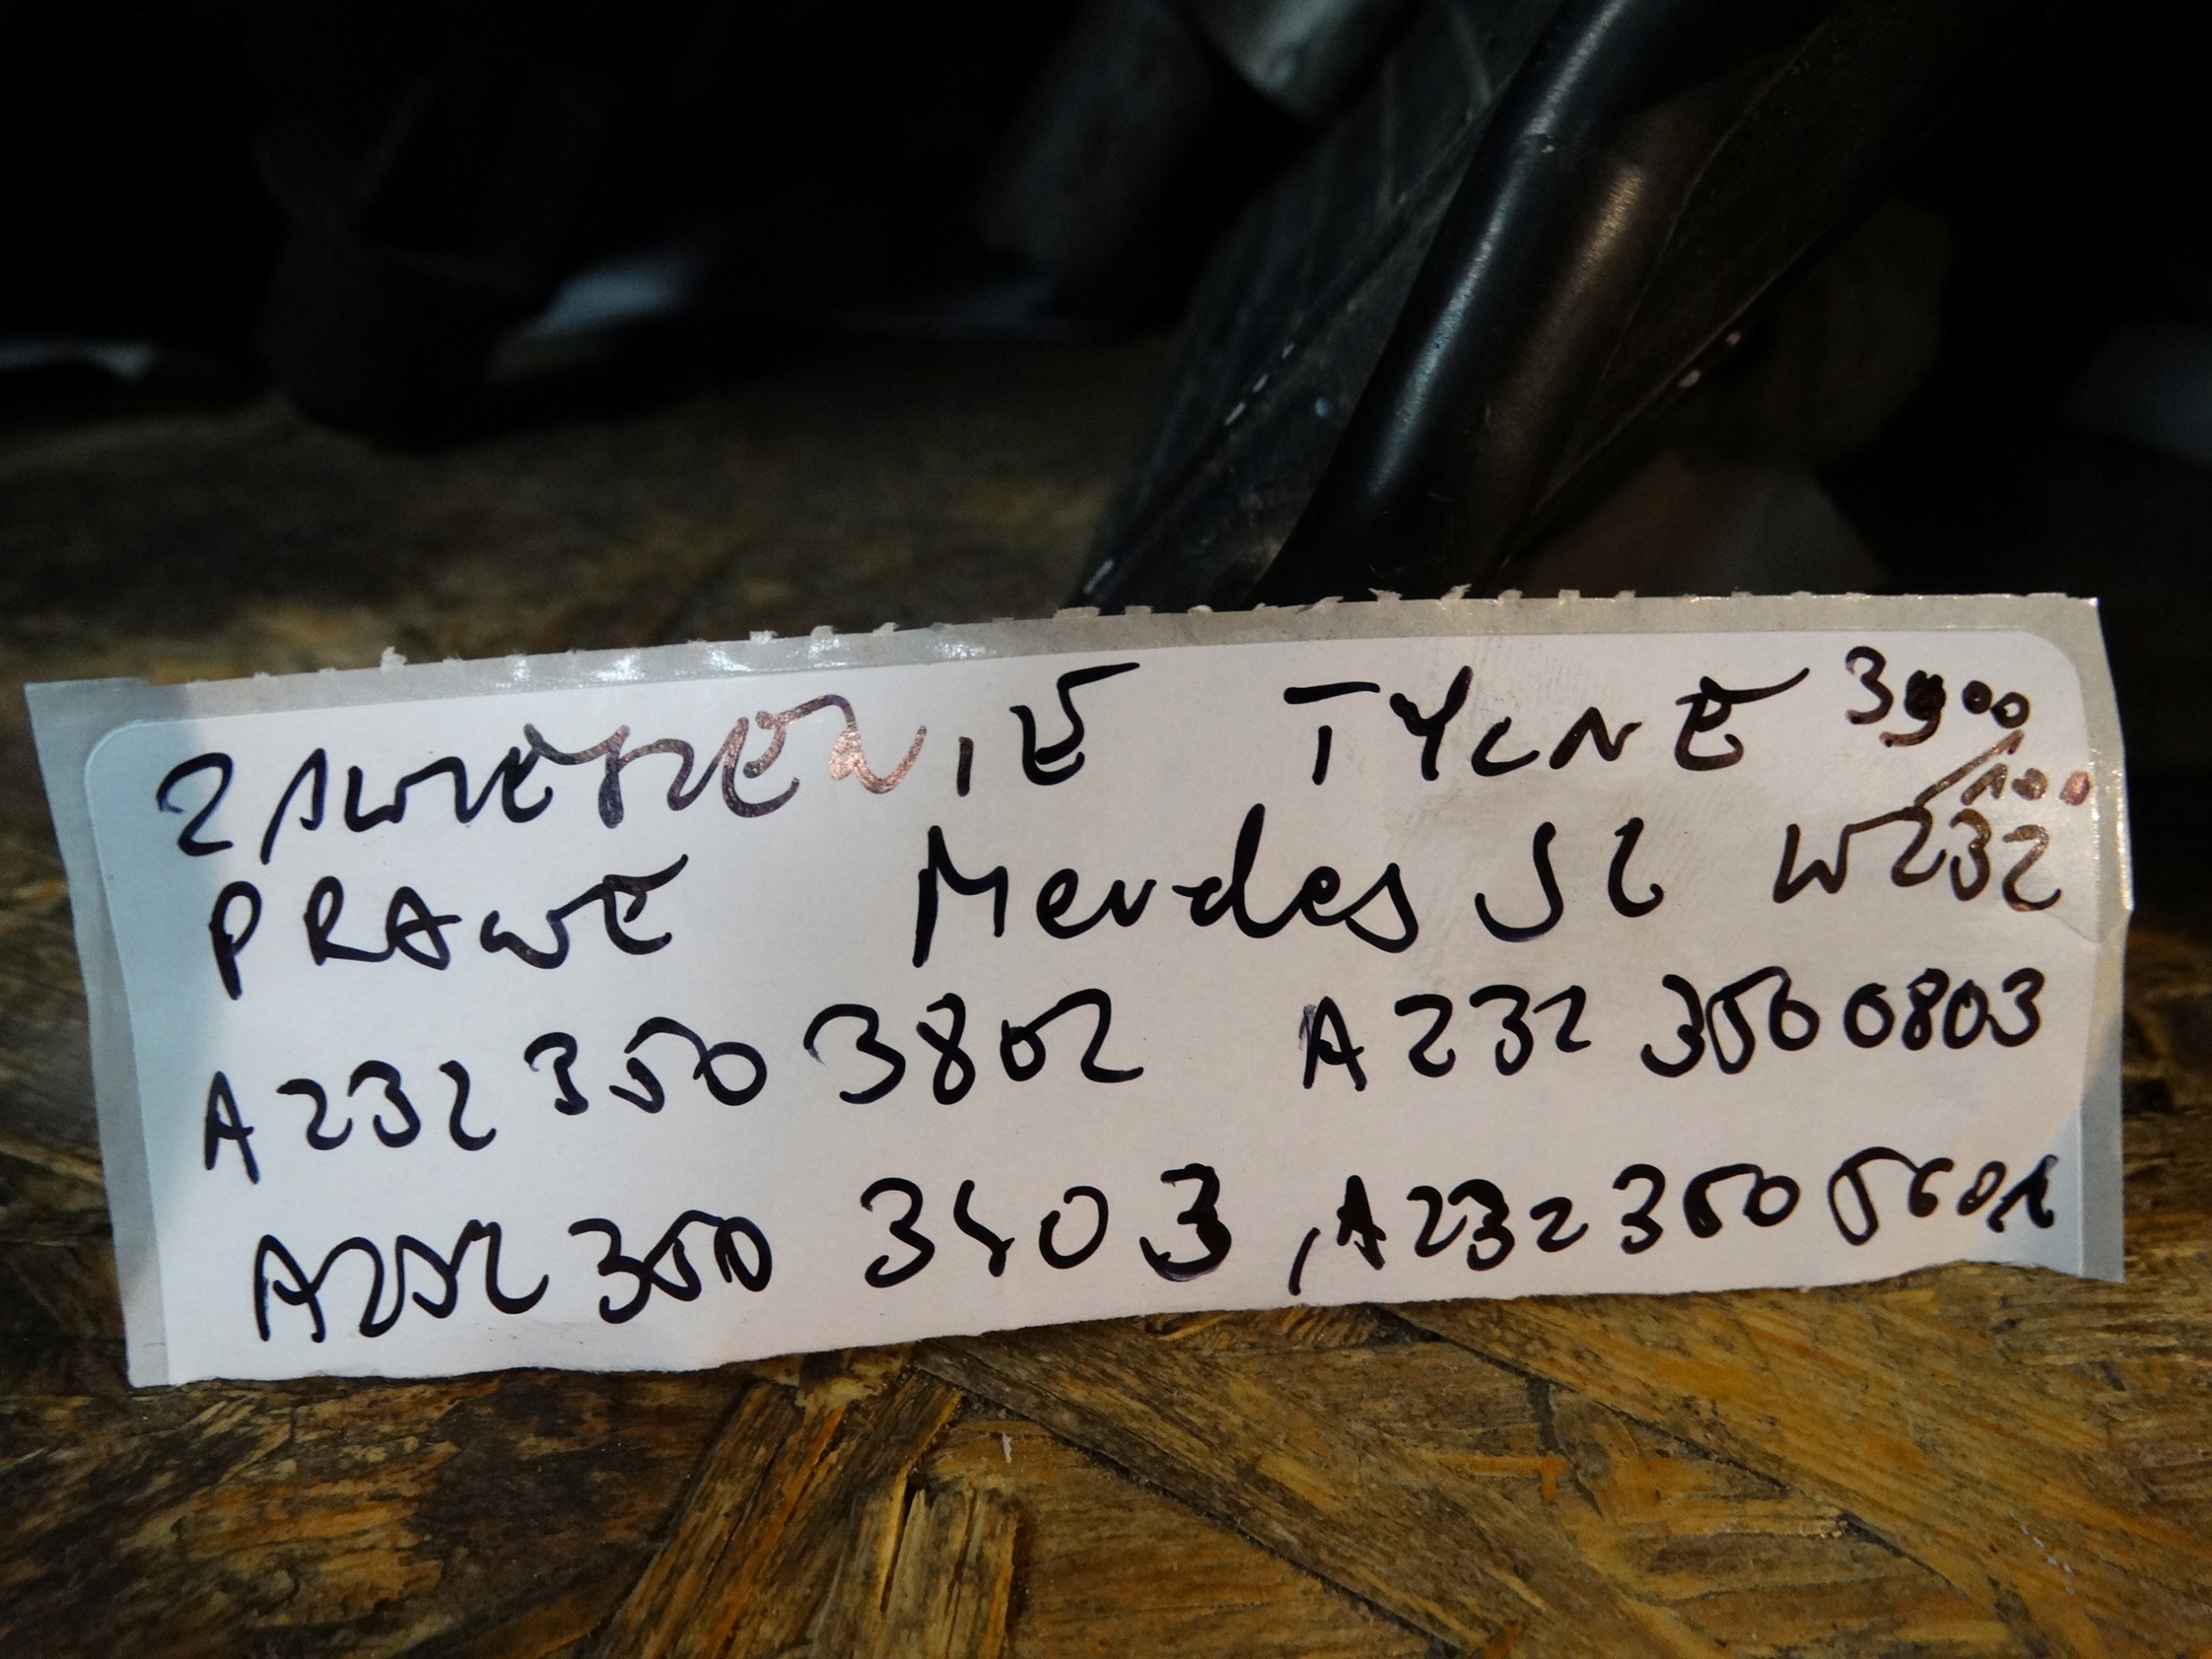 ZAWIESZENIE TYLNE 3900
/100
PRAWE Mercedes SL W232
A232 350 3802 A 232 350 0803
A232 350 3403, A232 350 5601